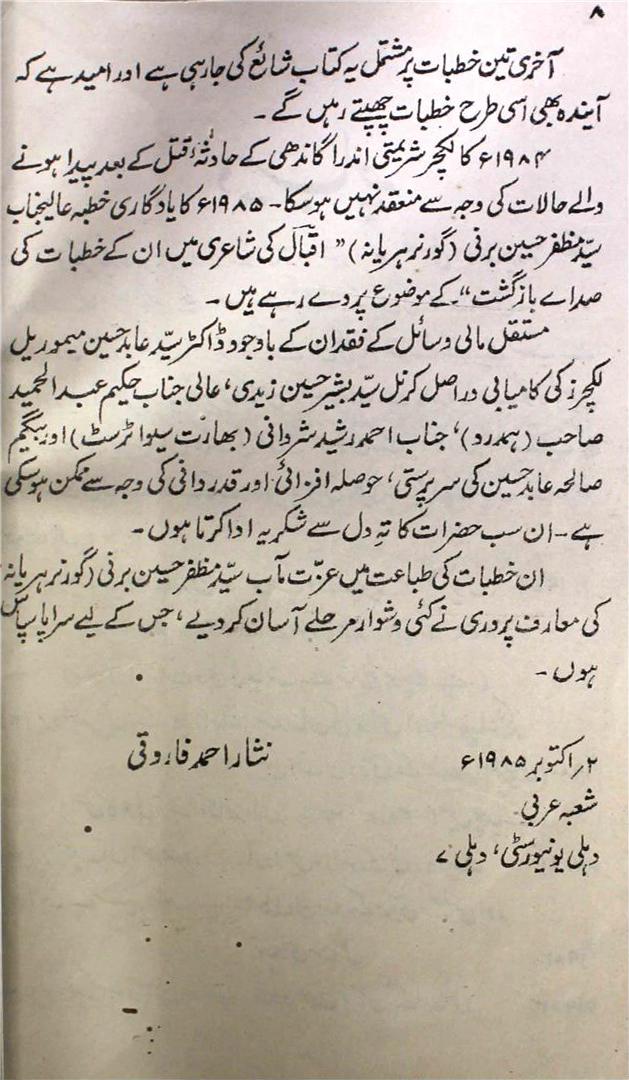 ۸
آخری تین خطبات پر مشتمل یہ کتاب شائع کی جارہی ہے اور امید ہے کہ
آیندہ بھی اسی طرح خطبات چھپتے رہیں گے ۔
۱۹۸۴ء کا لکچر شریمتی اندرا گاندھی کے حادثۂ قتل کے بعد پیدا ہونے
والے حالات کی وجہ سے منعقد نہیں ہوسکا ۔ ۱۹۸۵ء کا یادگاری خطبہ عالیجناب
سیّد مظفر حسین برنی (گورنر ہریانہ) ” اقبالؔ کی شاعری میں ان کے خطبات کی
صداے بازگشت “ کے موضوع پر دے رہے ہیں ۔
مستقل مالی وسائل کے فقدان کے باوجود ڈاکٹر سیّد عابد حسین میموریل
لکچرز کی کامیابی دراصل کرنل سیّد بشیر حسین زیدی، عالی جناب حکیم عبد الحمید
صاحب (ہمدرد)، جناب احمد رشید شروانی (بھارت سیوا ٹرسٹ) اور بیگم
صالحہ عابد حسین کی سرپرستی، حوصلہ افزائی اور قدر دانی کی وجہ سے ممکن ہوسکی
ہے ۔ ان سب حضرات کا تہِ دل سے شکریہ ادا کرتا ہوں ۔
ان خطبات کی طباعت میں عزّت مآب سیّد مظفر حسین برنی (گورنر ہریانہ
کی معارف پروری نے کئی دشوار مرحلے آسان کر دیے، جس کے لیے سراپا سپاس
ہوں ۔
۲؍ اکتوبر ۱۹۸۵ء نثار احمد فاروقی
شعبہ عربی
دہلی یونیورسٹی، دہلی ۷